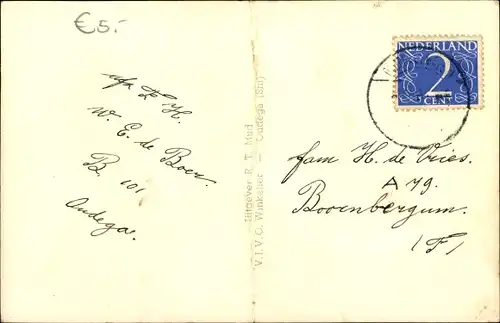 €5.-
afz F. H.
W. E. de Boer.
B 101
Oudega.
Uitgever R. T. Mud
V.I.V.O. Winkelier — Oudega (Sm)
NEDERLAND
2
CENT
fam H. de Vries.
A 79.
Boornbergum.
(F)